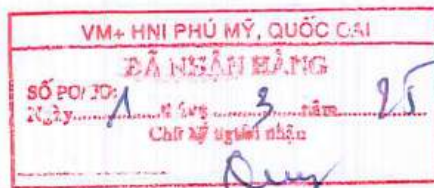 VM+ HNI PHÚ MỸ, QUỐC OAI
ĐÃ NHẬN HÀNG
SỐ PO/ TO:
Ngày 1 tháng 3 năm 25
Chữ ký người nhận